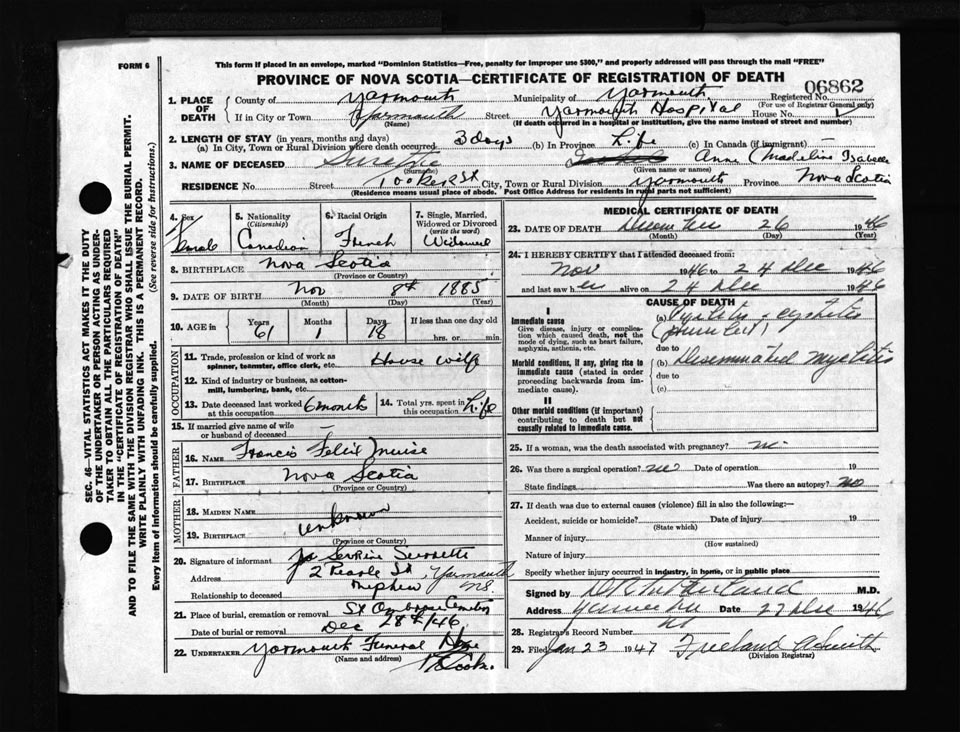 FORM 6
This form if placed in an envelope, marked "Dominion Statistics—Free, penalty for improper use $300," and properly addressed will pass through the mail "FREE"
PROVINCE OF NOVA SCOTIA—CERTIFICATE OF REGISTRATION OF DEATH
06862
SEC. 46—VITAL STATISTICS ACT MAKES IT THE DUTY
OF THE UNDERTAKER OR PERSON ACTING AS UNDER-
TAKER TO OBTAIN ALL THE PARTICULARS REQUIRED
IN THE "CERTIFICATE OF REGISTRATION OF DEATH"
AND TO FILE THE SAME WITH THE DIVISION REGISTRAR WHO SHALL ISSUE THE BURIAL PERMIT.
WRITE PLAINLY WITH UNFADING INK. THIS IS A PERMANENT RECORD.
Every item of information should be carefully supplied. (See reverse ride for Instructions.)
1. PLACE OF DEATH County of Yarmouth Municipality of Yarmouth Registered No.
(For use of Registrar General only)
If in City or Town Yarmouth Street Yarmouth Hospital House No.
(Name) (If death occurred in a hospital or institution, give the name instead of street and number)
2. LENGTH OF STAY (in years, months and days)
(a) In City, Town or Rural Division where death occurred 3 days (b) In Province Life (c) In Canada (if immigrant) —
3. NAME OF DECEASED Surette Anne (Madeline Isabelle
(Surname) (Given name or names)
RESIDENCE No. Street Tooker St City, Town or Rural Division Yarmouth Province Nova Scotia
(Residence means usual place of abode. Post Office Address for residents in rural parts not sufficient)
4. Sex Female
5. Nationality (Citizenship) Canadian
6. Racial Origin French
7. Single, Married, Widowed or Divorced (write the word) Widowed
8. BIRTHPLACE Nova Scotia
(Province or Country)
9. DATE OF BIRTH Nov 8th 1885
(Month) (Day) (Year)
10. AGE in Years 61 Months 1 Days 18 If less than one day old
hrs. or min.
OCCUPATION
11. Trade, profession or kind of work as House wife
spinner, teamster, office clerk, etc.
12. Kind of industry or business, as cotton-
mill, lumbering, bank, etc.
13. Date deceased last worked at this occupation 6 months
14. Total yrs. spent in this occupation Life
15. If married give name of wife
or husband of deceased —
FATHER
16. Name Francis Felix Muise
17. Birthplace Nova Scotia
(Province or Country)
MOTHER
18. Maiden Name
19. Birthplace unknown
(Province or Country)
20. Signature of informant Surrette
Address 2 Pearle St, Yarmouth N.S.
Relationship to deceased nephew
21. Place of burial, cremation or removal St Ambrose Cemetery
Date of burial or removal Dec 28th/46
22. UNDERTAKER Yarmouth Funeral Home
(Name and address)
Cook.
MEDICAL CERTIFICATE OF DEATH
23. DATE OF DEATH December 26 1946
(Month) (Day) (Year)
24. I HEREBY CERTIFY that I attended deceased from:
Nov 1946 to 24 Dec 1946
and last saw her alive on 24 Dec 1946
CAUSE OF DEATH
I
Immediate cause
Give disease, injury or complica-
tion which caused death, not the
mode of dying, such as heart failure,
asphyxia, asthenia, etc.
(a) cystitis
due to
Morbid conditions, if any, giving rise to
immediate cause (stated in order
proceeding backwards from im-
mediate cause).
(b) Disseminated myelitis
due to
(c)
II
Other morbid conditions (if important)
contributing to death but not
causally related to immediate cause.
25. If a woman, was the death associated with pregnancy? no
26. Was there a surgical operation? no Date of operation 19
State findings Was there an autopsy? no
27. If death was due to external causes (violence) fill in also the following:—
Accident, suicide or homicide? Date of injury 19
(State which)
Manner of injury
(How sustained)
Nature of injury
Specify whether injury occurred in industry, in home, or in public place
Signed by M.D.
Address Yarmouth Date 27 Dec 1946
28. Registrar's Record Number
29. Filed Jan 23 1947 Freeland
(Division Registrar)